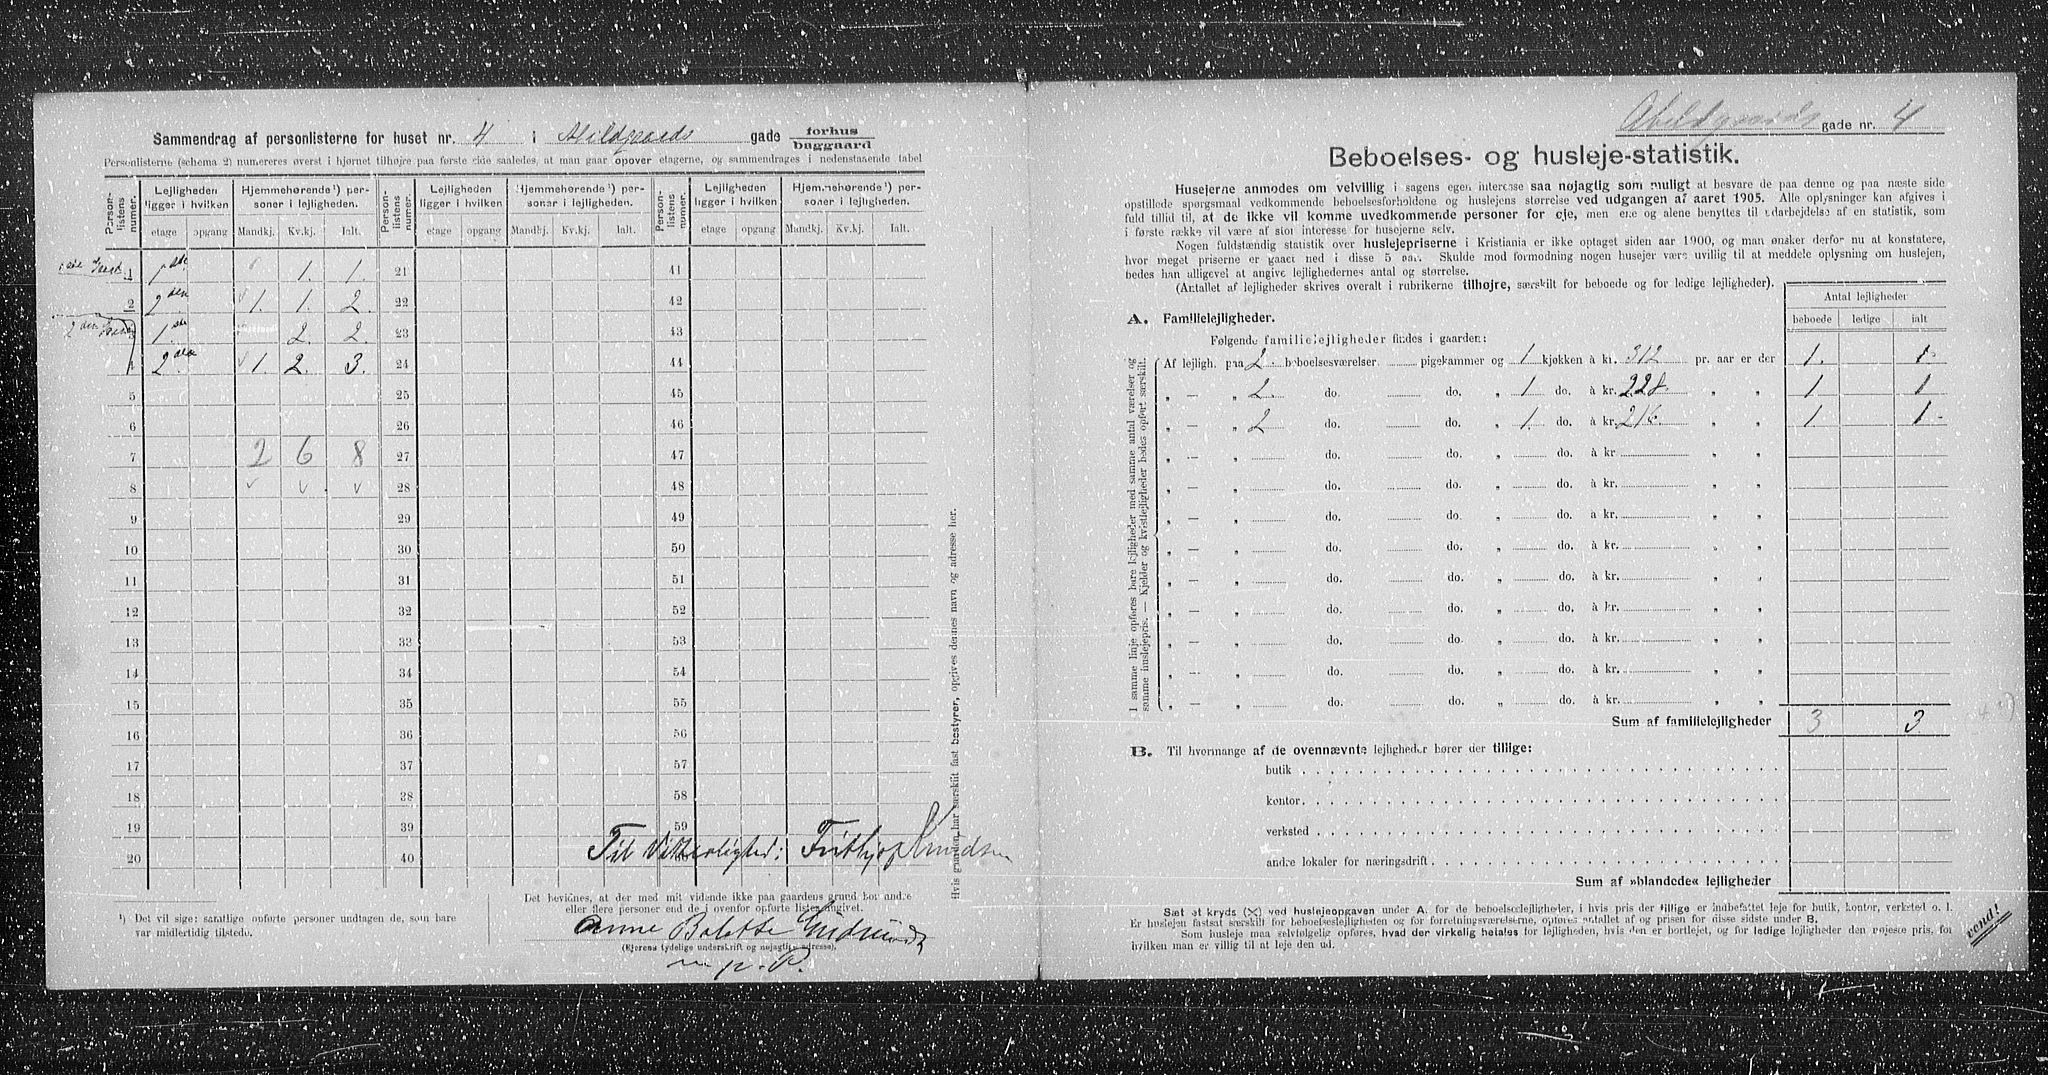 Sammendrag af personlisterne for huset nr. 4 i Abildgaards gade forhus baggaard
Personlisterne (schema 2) numereres øverst i hjørnet tilhøjre paa første side saaledes, at man gaar opover etagerne, og sammendrages i nedenstaaende tabel
Personlistens numer. | Lejligheden ligger i hvilken | Hjemmehørende¹) personer i lejligheden. | Personlistens numer. | Lejligheden ligger i hvilken | Hjemmehørende¹) personer i lejligheden. | Personlistens numer. | Lejligheden ligger i hvilken | Hjemmehørende¹) personer i lejligheden.
etage opgang Mandkj. Kv.kj. Ialt. etage opgang Mandkj. Kv.kj. Ialt. etage opgang Mandkj. Kv.kj. Ialt.
1 1ste 1. 1. 21 41
2 2den 1. 1. 2. 22 42
3 1ste 2. 2. 23 43
4 2den 1. 2. 3. 24 44
5 25 45
6 26 46
7 2 6 8 27 47
8 28 48
9 29 49
10 30 50
11 31 51
12 32 52
13 33 53
14 34 54
15 35 55
16 36 56
17 37 57
18 38 58
19 39 59
20 40
Til Vitterlighed: Frithjof Knudsen
¹) Det vil sige: samtlige opførte personer undtagen de, som bare
var midlertidig tilstede.
Det bevidnes, at der med mit vidende ikke paa gaardens grund bor andre
eller flere personer end de i ovenfor opførte lister angivet.
Anne Bolette Gudmundt
(Ejerens tydelige underskrift og nøjagtige adresse).
m. p. P.
Hvis gaarden har særskilt fast bestyrer, opgives dennes navn og adresse her.
Abildgaards gade nr. 4
Beboelses- og husleje-statistik.
Husejerne anmodes om velvillig i sagens egen interesse saa nøjagtig som muligt at besvare de paa denne og paa næste side
opstillede spørgsmaal vedkommende beboelsesforholdene og huslejens størrelse ved udgangen af aaret 1905. Alle oplysninger kan afgives i
fuld tillid til, at de ikke vil komme uvedkommende personer for øje, men ene og alene benyttes til udarbejdelse af en statistik, som
i første række vil være af stor interesse for husejerne selv.
Nogen fuldstændig statistik over huslejepriserne i Kristiania er ikke optaget siden aar 1900, og man ønsker derfor nu at konstatere,
hvor meget priserne er gaaet ned i disse 5 aar. Skulde mod formodning nogen husejer være uvillig til at meddele oplysning om huslejen,
bedes han alligevel at angive lejlighedernes antal og størrelse.
(Antallet af lejligheder skrives overalt i rubrikerne tilhøjre, særskilt for beboede og for ledige lejligheder).
Antal lejligheder
beboede ledige ialt
A. Familielejligheder.
Følgende familielejligheder findes i gaarden:
Af lejligh. paa 2 beboelsesværelser pigekammer og 1 kjøkken à kr. 312 pr. aar er der 1. 1.
„ — „ 2. do. do. „ 1 do. à kr. 228. „ „ 1 1
„ — „ 2 do. do. „ 1. do. à kr. 216. „ „ 1 1.
„ — „ do. do. „ do. à kr. „ „
„ — „ do. do. „ do. à kr. „ „
„ — „ do. do. „ do. à kr. „ „
„ — „ do. do. „ do. à kr. „ „
„ — „ do. do. „ do. à kr. „ „
„ — „ do. do. „ do. à kr. „ „
„ — „ do. do. „ do. à kr. „ „
„ — „ do. do. „ do. à kr. „ „
„ — „ do. do. „ do. à kr. „ „
I samme linje opføres bare lejligheder med samme antal værelser og
samme huslejepris. — Kjelder og kvistlejligheder bedes opført særskilt.
Sum af familielejligheder 3 3.
B. Til hvormange af de ovennævnte lejligheder hører der tillige:
butik
kontor
verksted
andre lokaler for næringsdrift
Sum af »blandede« lejligheder
Sæt et kryds (×) ved huslejeopgaven under A. for de beboelseslejligheder, i hvis pris der tillige er indbefattet leje for butik, kontor, verksted o. l.
Er huslejen fastsat særskilt for beboelseslejligheden og for forretningsværelserne, opføres antallet af og prisen for disse sidste under B.
Som husleje maa selvfølgelig opføres, hvad der virkelig betales for lejligheden, hvis den er bortlejet, og for ledige lejligheder den højeste pris, for
hvilken man er villig til at leje den ud.
vend!